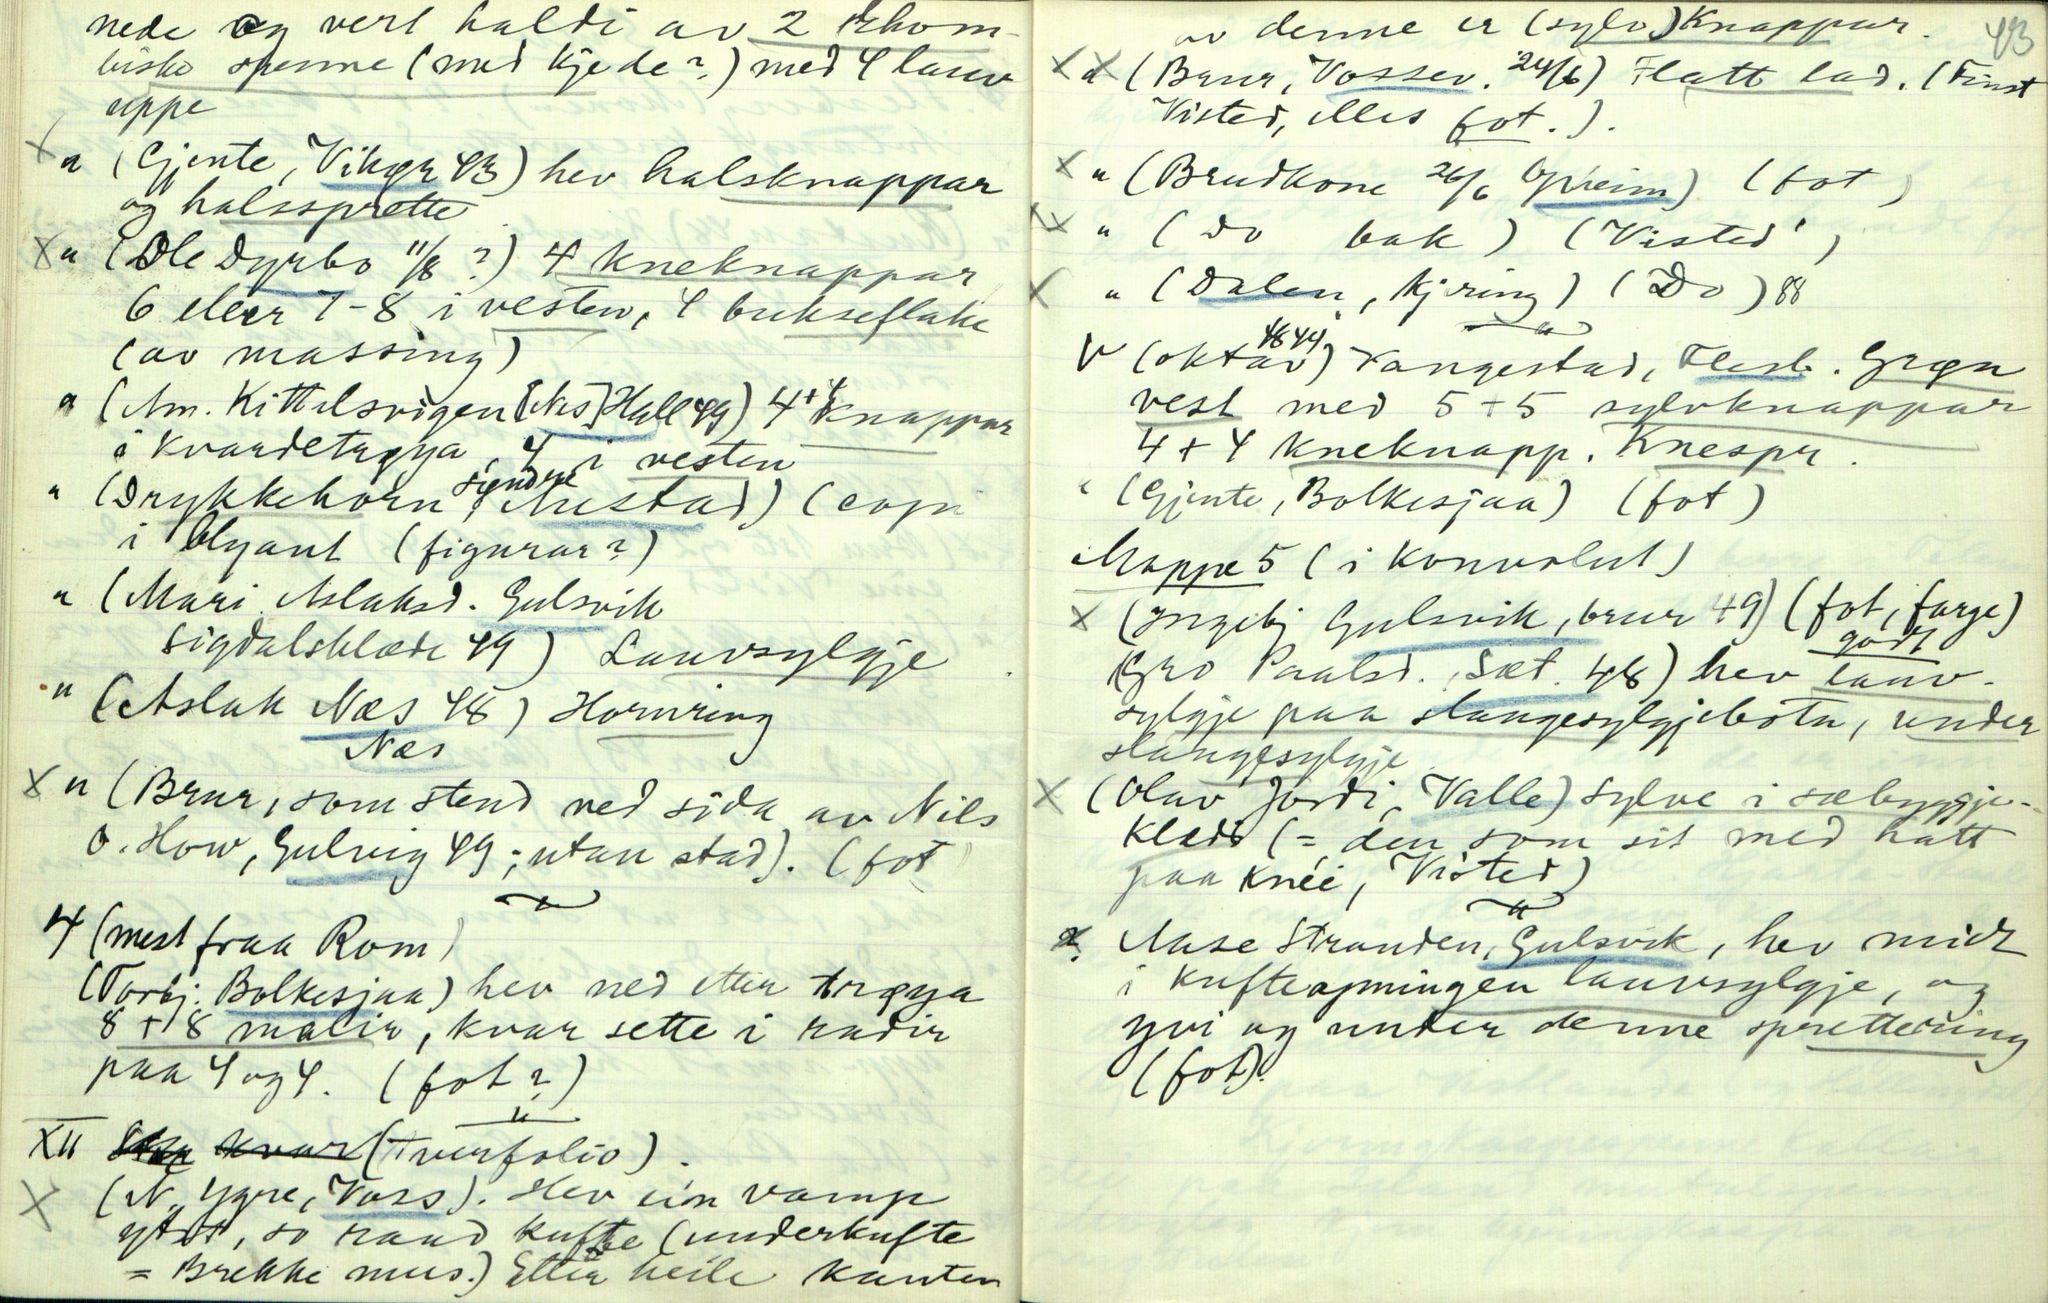 nede og vert haldi av 2 rhom-
biske spenne (med kjede?) med 4 lauv
uppe
X " (Gjente, Vikør 43) hev halsknappar
og halssprette
X " (Ole Dyrbo 11/8 ?) 4 kneknappar
6 eller 7-8 i vesten, 4 bukseflake
(av massing)
" (Am. Kittelsvigen [Nes] Hall 49) 4+4 knappar
i kvardetrøya, 4 i vesten
" (Drykkehorn, Syndre Austad) (copi
i blyant (figurar?)
" (Mari Aslaksd. Gulsvik
Sigdalsklæde 49) Lauvsylgje
" (Aslak Næs 48) Hornring
Næs
X " (Brur, som stend ved sida av Nils
O. How, Gulvig 49; utan stad). (fot)
4 (mest fraa Rom)
(Torbj. Bolkesjaa) hev ned etter trøya
8 + 8 malir, kvar sette i radir
paa 4 og 4. (fot?)
XII kvar (Tverfolio).
X (N. Ygre, Voss). Hev ein vamp
ytst, so raud kufte (underkufte
= Brekke mus.) Etter heile kanten
43
av denne er (sylv)knappar.
X X " (Brur, Vossev. 24/6) Flatt lad. (Finst
Visted, elles fot.).
X " (Brudkone 26/6 Opheim) (fot)
X X " (Do bak) (Visted)
X " (Dalen, kjering) (Do) 88
V (oktav) 1844 Vangestad, Flesb. Grøn
vest med 5 + 5 sylvknappar
4 + 4 kneknapp. Knespr.
" (Gjente, Bolkesjaa) (fot)
Mappe 5 (i konvolut)
X (Ingebj Gulsvik, brur 49) (fot, farge)
(Gro Paalsd. Sæt. 48) hev godt lauv-
sylgje paa slangesylgjebotn, under
slangesylgje.
X (Olav Jordi, Valle) Sylve i sæbyggje-
klæde (= den som sit med hatt
paa kneé, Visted)
Aase Stranden, Gulsvik, hev midt
i kufteopningen lauvsylgje, og
yvi og under denne sprettering
(fot).